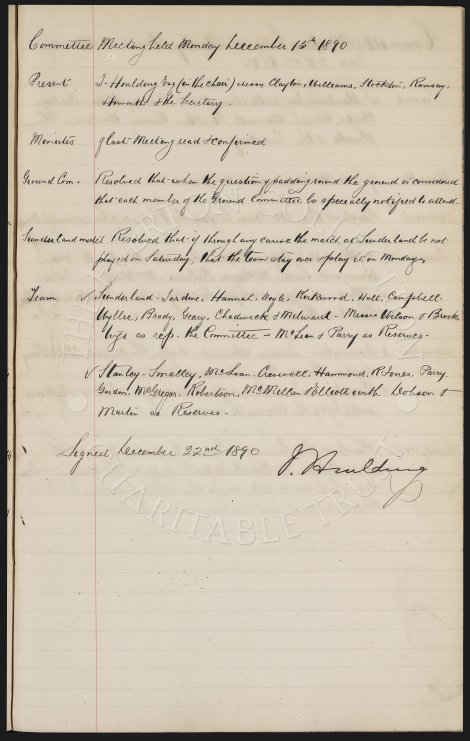 Committee Meeting held Monday December 15th 1890
Present J. Houlding Esq (in the chair) Messrs Clayton, Williams, Stockton, Ramsay,
Howarth & the Secretary.
Minutes of Last Meeting read & confirmed
Ground Com. Resolved that when the question of padding round the ground is considered
that each member of the Ground Committee be specially notified to attend.
Sunderland match Resolved that if through any cause the match at Sunderland be not
played on Saturday, that the team stay over & play it on Monday
Team ✓ Sunderland - Jardine, Hannah, Doyle, Kirkwood, Holt, Campbell
Wyllie, Brady, Geary, Chadwick & Milward - Messrs Wilson & Brooks
as rep. the Committee - McLean & Parry as Reserves -
✓ Stanley - Smalley, McLean, Creswell, Hammond, R Jones, Parry
Gordon, McGregor, Robertson, McMillan & Elliott with Dobson &
Martin as Reserves -
Signed December 22nd 1890
J. Houlding
CHARITABLE TRUST